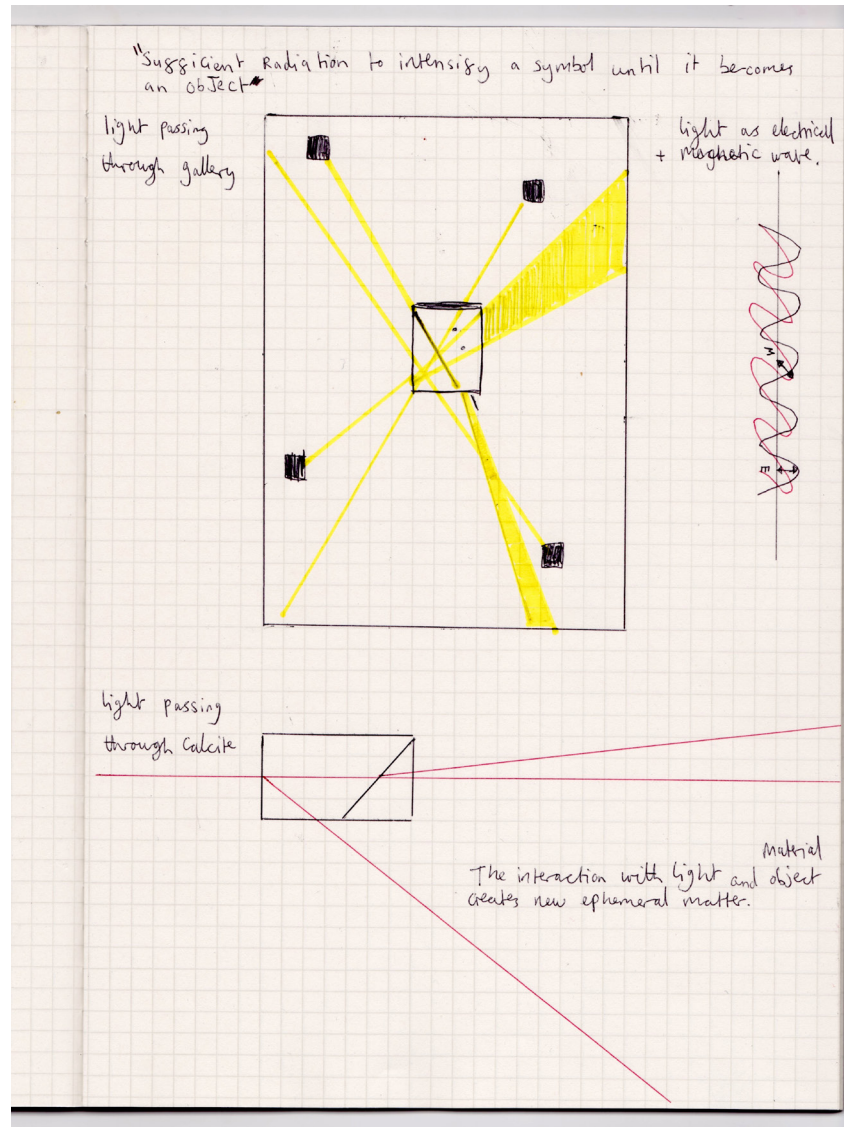 "Sufficient Radiation to intensify a symbol until it becomes
an object"
light passing
through gallery
light as electrical
+ magnetic wave.
M
E
light passing
through Calcite
Material
The interaction with light and object
creates new ephemeral matter.